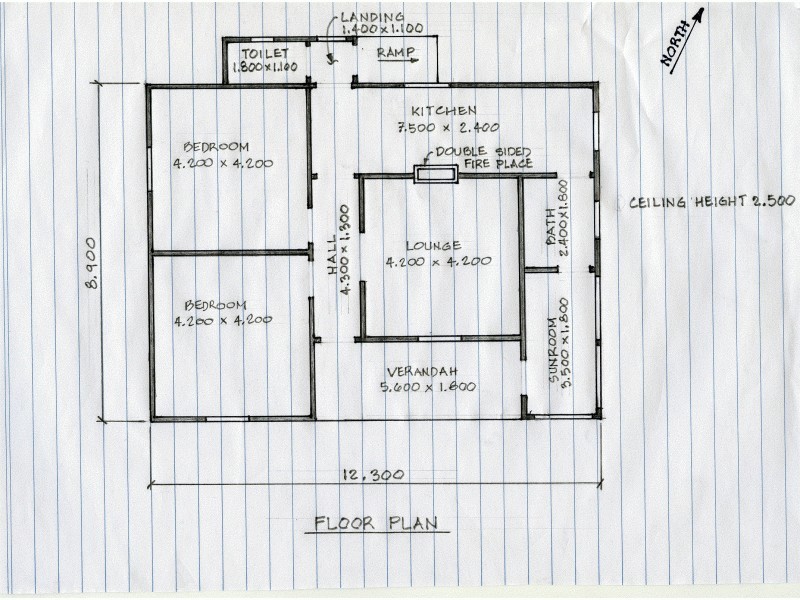 LANDING
1.400 x 1.100
NORTH
TOILET
1.800 x 1.100
RAMP
KITCHEN
7.500 x 2.400
BEDROOM
4.200 x 4.200
DOUBLE SIDED
FIRE PLACE
CEILING HEIGHT 2.500
BATH
2.400 x 1.800
HALL
4.300 x 1.300
LOUNGE
4.200 x 4.200
8.900
BEDROOM
4.200 x 4.200
SUNROOM
3.500 x 1.800
VERANDAH
5.600 x 1.800
12.300
FLOOR PLAN